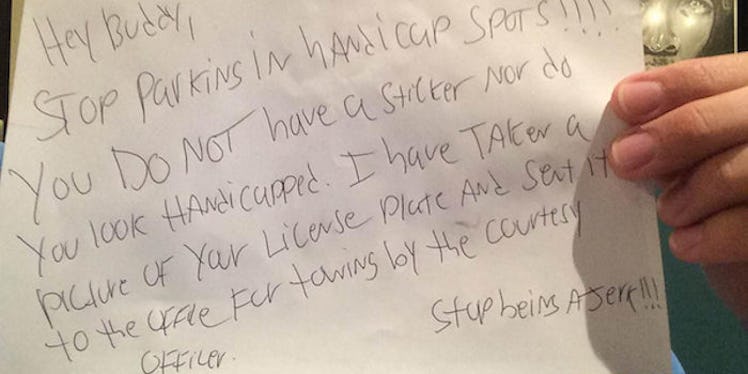 Hey Buddy,
STOP Parking IN hANdicap SPOTS!!!!
You DO NOT have a Sticker Nor do
You look HANdicapped. I have TAKen a
picture of Your License plate And Sent it
to the office For towing by the courtesy
OFFicer.
Stop being A Jerk!!!